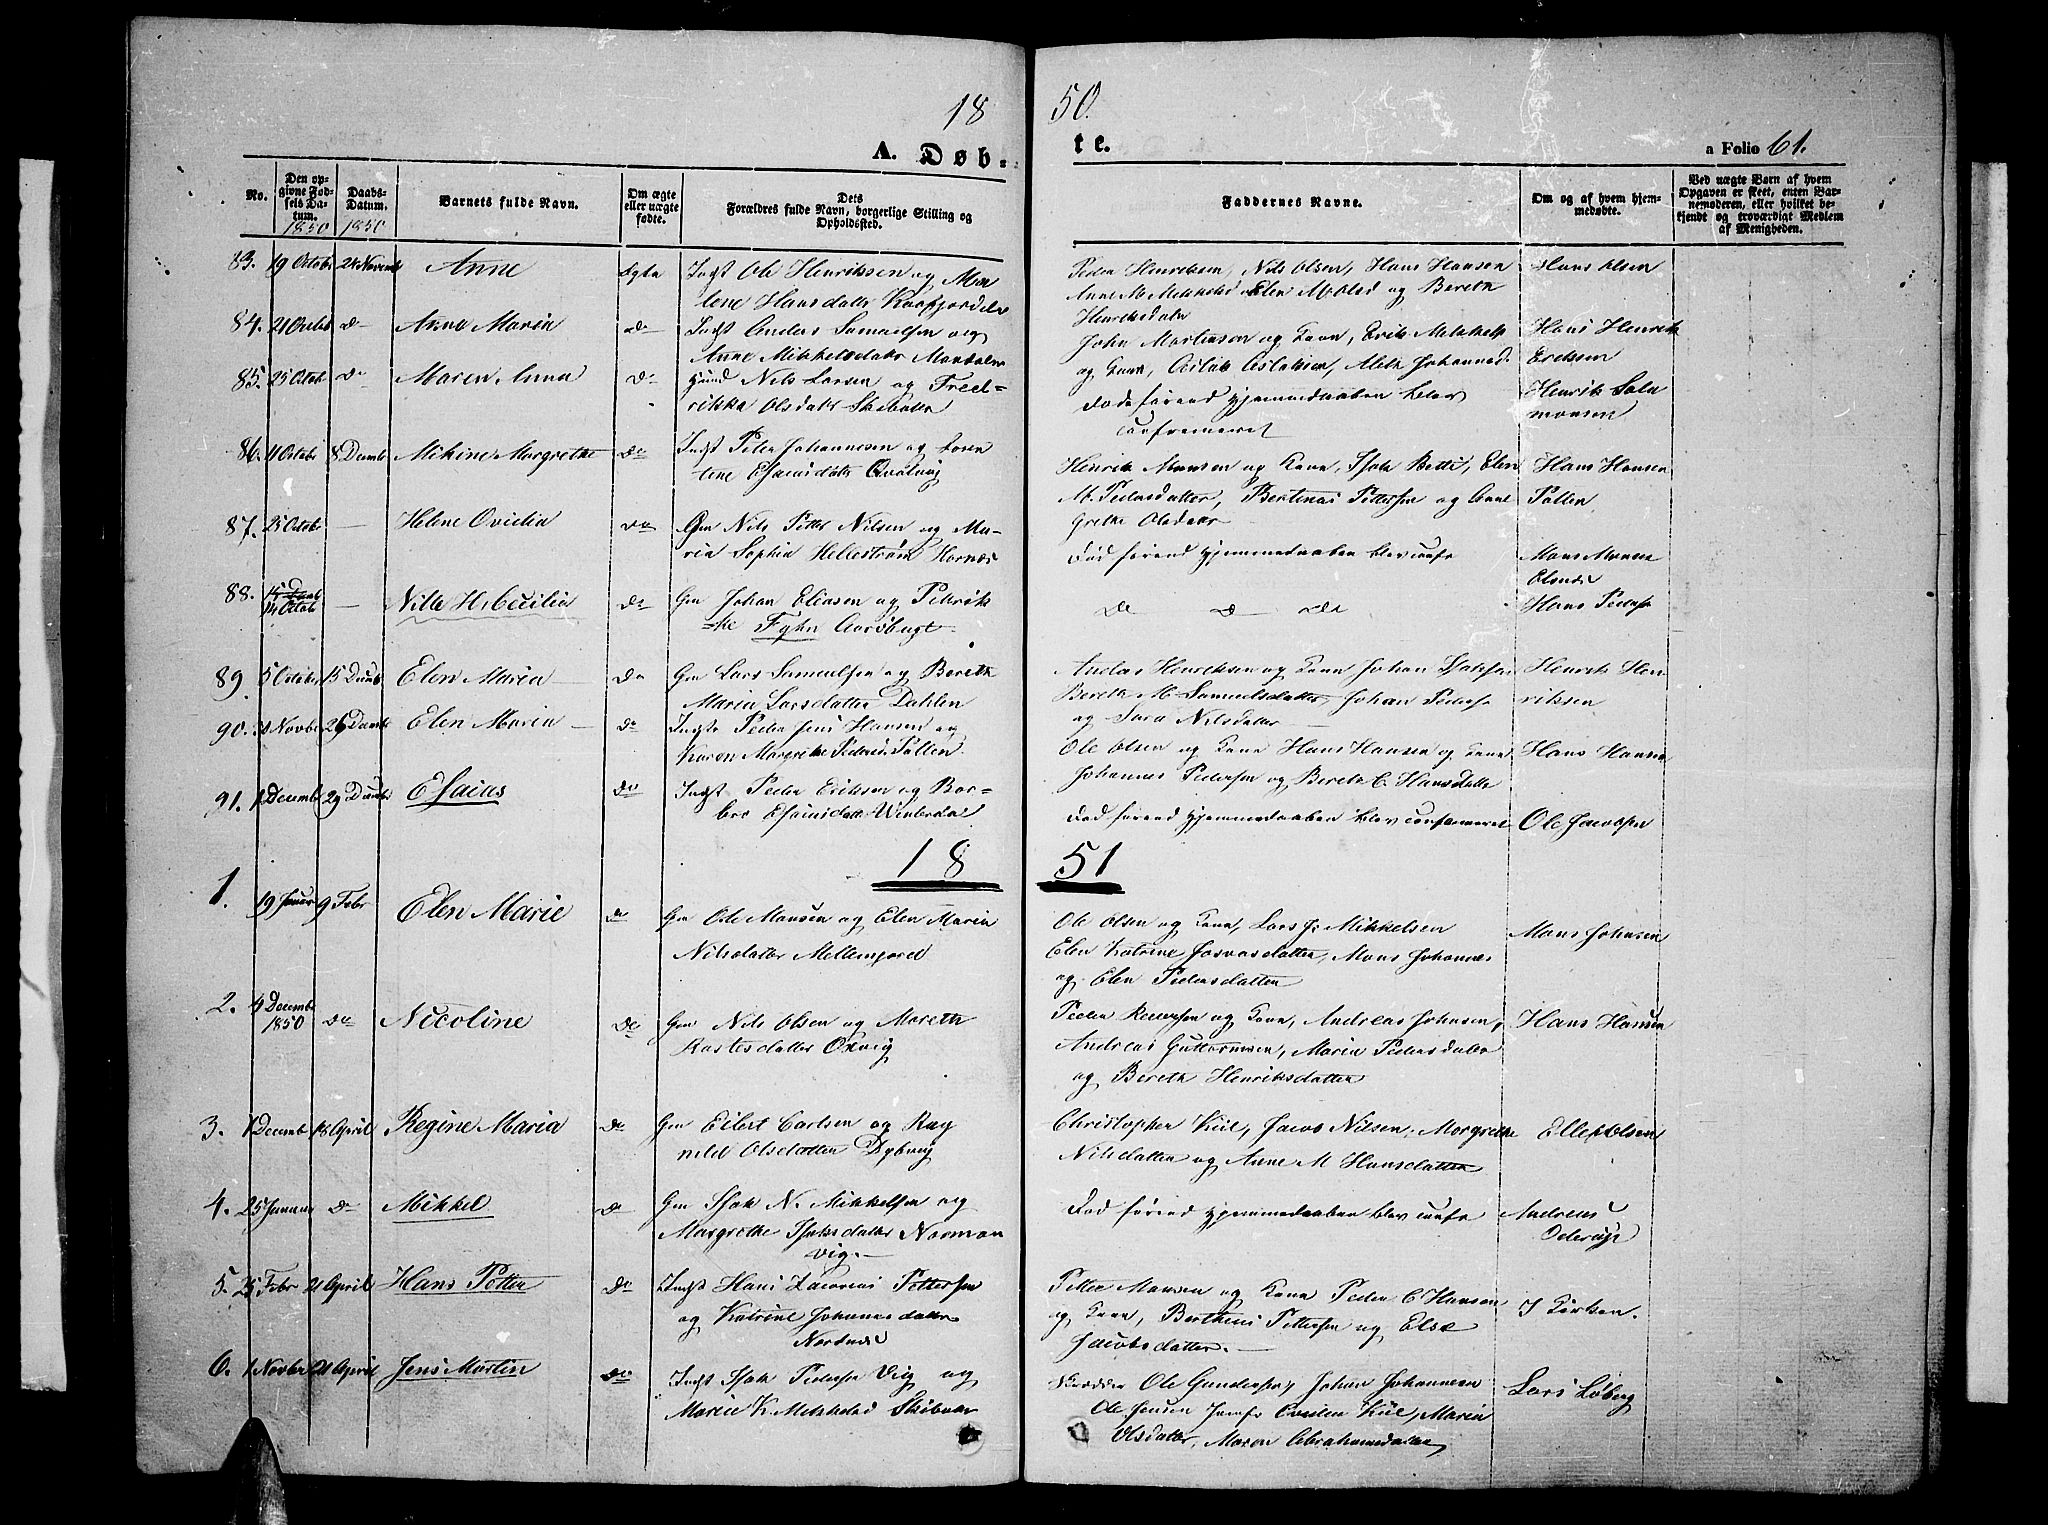 18 50.
A. Døb- te.
a Folio 61.
No.
Den opgivne Fødsels Datum.
1850
Daabs-Datum.
1850
Barnets fulde Navn.
Om ægte eller uægte fødte.
Dets Forældres fulde Navn, borgerlige Stilling og Opholdssted.
Faddernes Navne.
Om og af hvem hjemmedøbte.
Ved uægte Børn af hvem Opgaven er skeet, enten Barnemoderen, eller hvilket bekjendt og troværdigt Medlem af Menigheden.
83. 19 Octobr 24 Novemb Anne Egte Indst Ole Henriksen og Ma
lene Hansdatter Kaafjorddal
Peder Henriksen, Nils Olsen, Hans Hansen
Anne M. Mikkelsd Elen M. Olsd og Bereth
Henriksdatr
Hans Olsen
84. 21 Octbr Do Anna Maria Do Indst Anders Samuelsen og
Anne Mikkelsdatr Mandalen
John Mortensen og Kone, Erik Mikkels
og Kone, Aslak Aslaksen, Aleth Johannesd.
Hans Henrik
Eriksen
85. 25 Octob Do Maren Anna Do Nils Larsen og Fred-
rikka Olsdatr Skibotn
Døde førend Hjemmedaaben blev
confirmeret
Henrik Salo
monsen
86. 11 Octobr 8 Decemb Mikine Margrethe Do Indst Peder Johannesen og Loren
tine Esaiasdatr Qvalvig
Henrik Monsen og Kone, Isak Betti, Elen
M. Pedersdatter, Bertinus Pettersen og Anne
Grethe Olsdatr
Hans Hansen
Pollen.
87. 25 Octobr — Helene Ovidia Do Gm Nils Petter Nilsen og Ma-
ria Sophia Hellestrøm Hornæs
Død førend Hjemmedaaben blev confr
Mons Monsen
Elvnæs
88. 14 Octob — Nille H. Cecilia Do Gm Johan Eliasen og Petrik
ke Fyhn Aarsbugt
Do Do Do
Hans Peders
89. 5 Octobr 15 Decemb Elen Maria Do Gm Lars Samuelsen og Bereth
Maria Larsdatter Dahlen
Andas Henriksen og Kone Johan Isaksen
Bereth M. Samuelsdatter, Johan Peders
og Sara Nilsdatter
Henrik Hen
riksen
90. Novbr 26 Decemb Elen Maria Do Indst Peder Jens Hansen og
Karen Margrethe Pedersd. Pollen
Ole Olsen og Kone Hans Hansen og Kone
Johannes Pedersen og Bereth C. Hansdatter
Hans Hansen
91. 1 Decemb 29 Decmb Esaias Do Indst Peder Eriksen og Bar-
bro Esaiasdatter Winterdal
Død førend Hjemmedaaben blev confirmeret
Ole Jacobsen
18 51
1. 19 Januar 9 Febr Elen Marie Do Gm Ole Monsen og Elen Maria
Nilsdatter Mellemjord
Ole Olsen og Kone, Lars J. Mikkelsen
Elen Katrine Josvasdatter, Mons Johannes
og Elen Pedersdatter
Mons Johnsen
2. 4 Decembr
1850 Do Nicoline Do Gm Nils Olsen og Mareth
Rastesdatter Oxvig
Peder Pedersen og Kone, Andreas Johnsen,
Andreas Guttormsen, Maria Pedersdatr
og Bereth Henriksdatter
Hans Hansen
3. 1 Decemb 18 April Regine Maria Do Gm Eilert Carlsen og Rag
nild Olsdatter Dybvig
Christopher Kiil, Jacob Nilsen, Margrethe
Nilsdatter og Anne M Hansdatter
Ellef Olsen
4. 25 Januar Do Mikkel Do Gm Isak N. Mikkelsen og
Margrethe Isaksdatter Norman
vig.
Død førend Hjemmedaaben blev confr
Andreas
Oderup
5. 25 Febr 21 April Hans Petter Do Indst Hans Zacarias Pettersen
og Katrine Johannesdatter
Nordnæs
Petter Monsen og Kone Peder C Hansen
og Kone, Berthinus Pettersen og Else
Jacobsdatter.
I Eriksen.
6. 1 Novbr 21 April Jens Martin Do Indst Isak Peders Vig og
Maria K. Mikkelsd Skibotn
Skrædder Ole Gundersen, Johan Johannesen
Ole Jensen Jomfr Ovidia Kiil, Maria
Olsdatter, Maren Abrahamsdatter
Lars Löberg